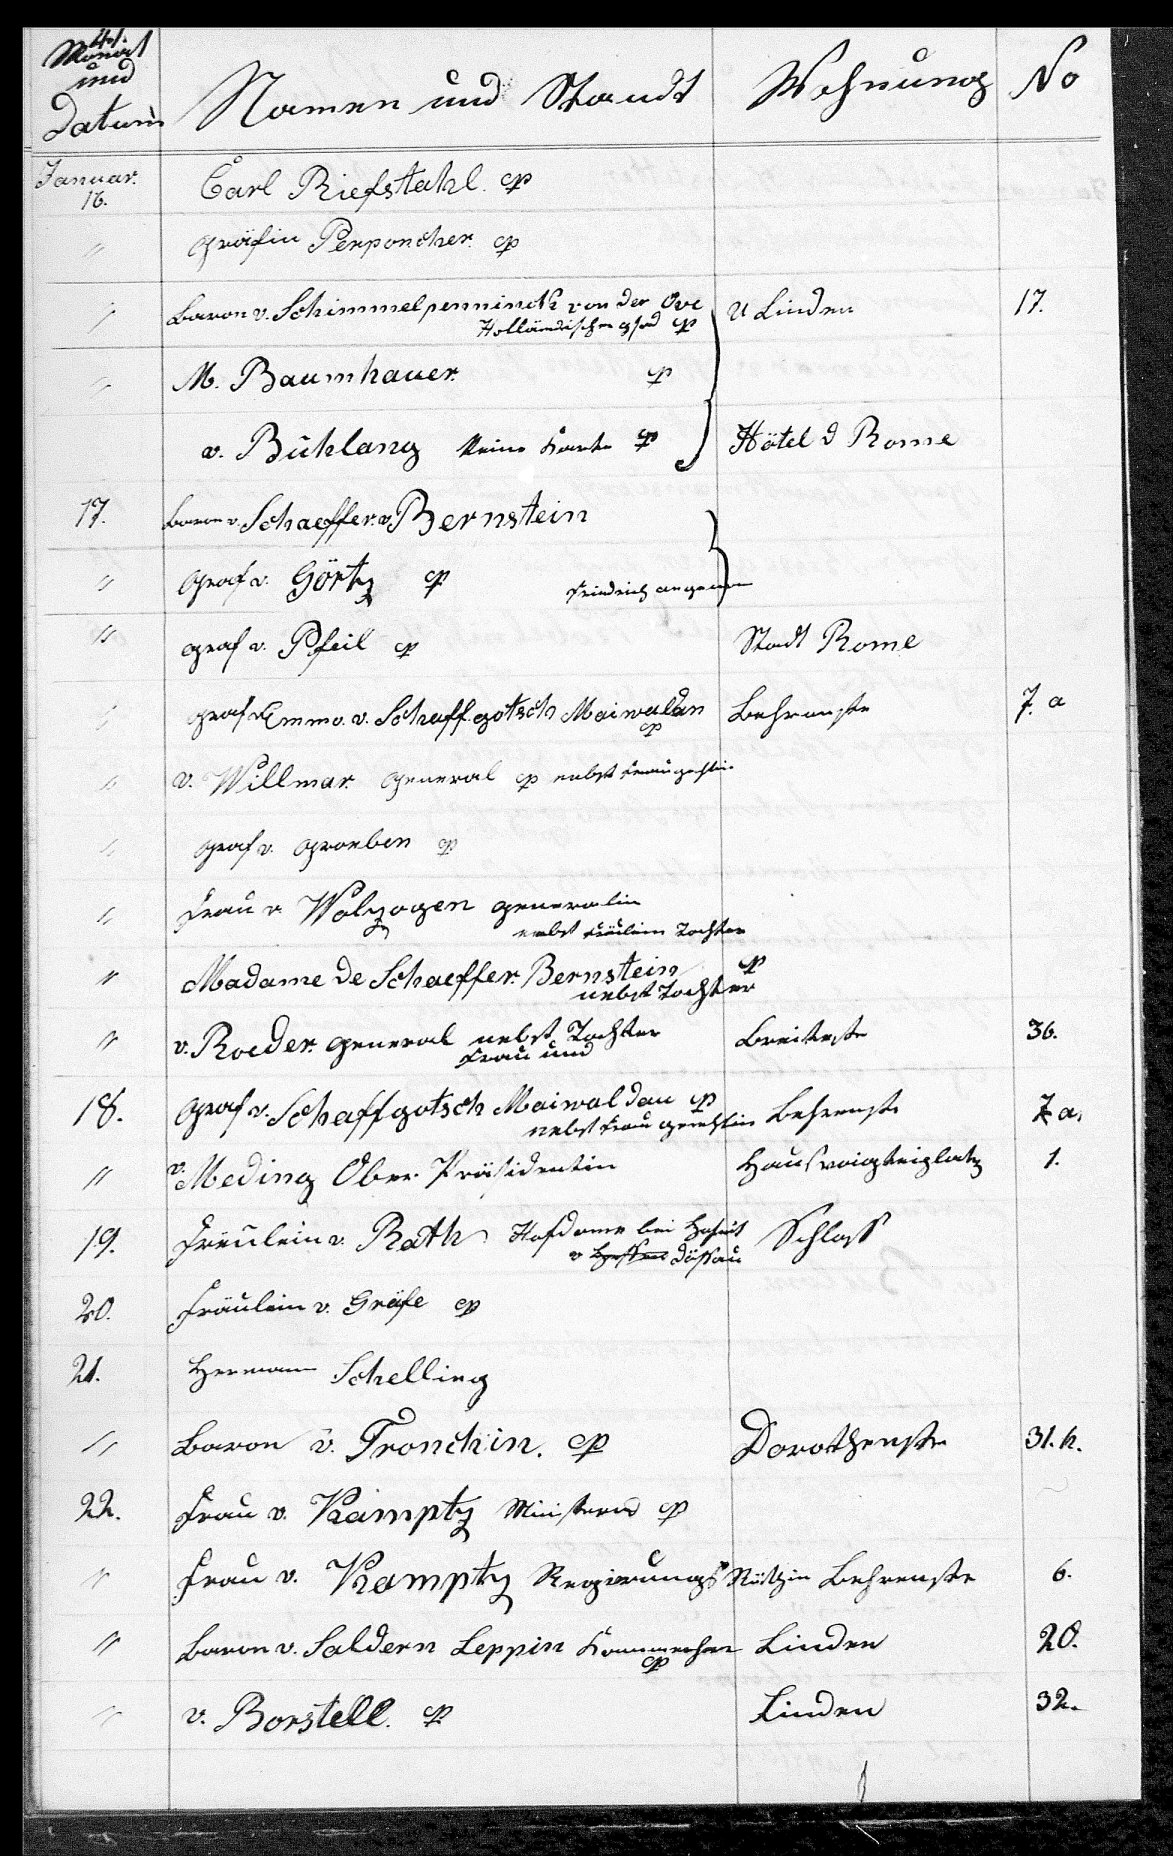 41.
Monat und Datum Namen und Standt Wohnung No
Januar. 16. Carl Riefstahl. cp
" Gräfin Perponcher. cp
" Baron v. Schimmelpenninck von der Oye U Linden 17.
Holländischer Gsad cp
" M. Baumhauer. cp
v. Bühlang keine Karte cp Hôtel d Rome
17. Baron v. Schaeffer v. Bernstein
" Graf v. Görtz cp
Friedrich
" Graf v. Pfeil cp Stadt Rome
" Graf Emmo. v. Schaffgotsch Maiwaldau Behrenste 7. a
cp
" v. Willmar. General cp nebst Frau
" Graf v. Groeben cp
" Frau v Wolzogen Generalin
nebst Fräulein Tochter
" Madame de Schaeffer. Bernstein cp
nebst Tochter
" v. Roeder. General nebst Tochter Breiteste 36.
Frau und
18. Graf v. Schaffgotsch Maiwaldau cp Behrenste 7 a.
nebst Frau Gemahlin
" v. Meding Ober. Präsidentin Hausvoigteiplatz 1.
19. Fräulein v. Rath Hofdame bei Schloss
v Hessen Dessau
20. Fräulein v. Gräfe cp
21. Hermann Schelling
" Baron v. Tronchin. cp Dorothenste 31. h.
22. Frau v. Kamptz Ministerin cp
" Frau v. Kamptz Regierungs Räthin Behrenste 6.
" Baron v. Saldern Leppin Kammerher Linden 20.
cp
" v. Borstell. cp Linden 32.